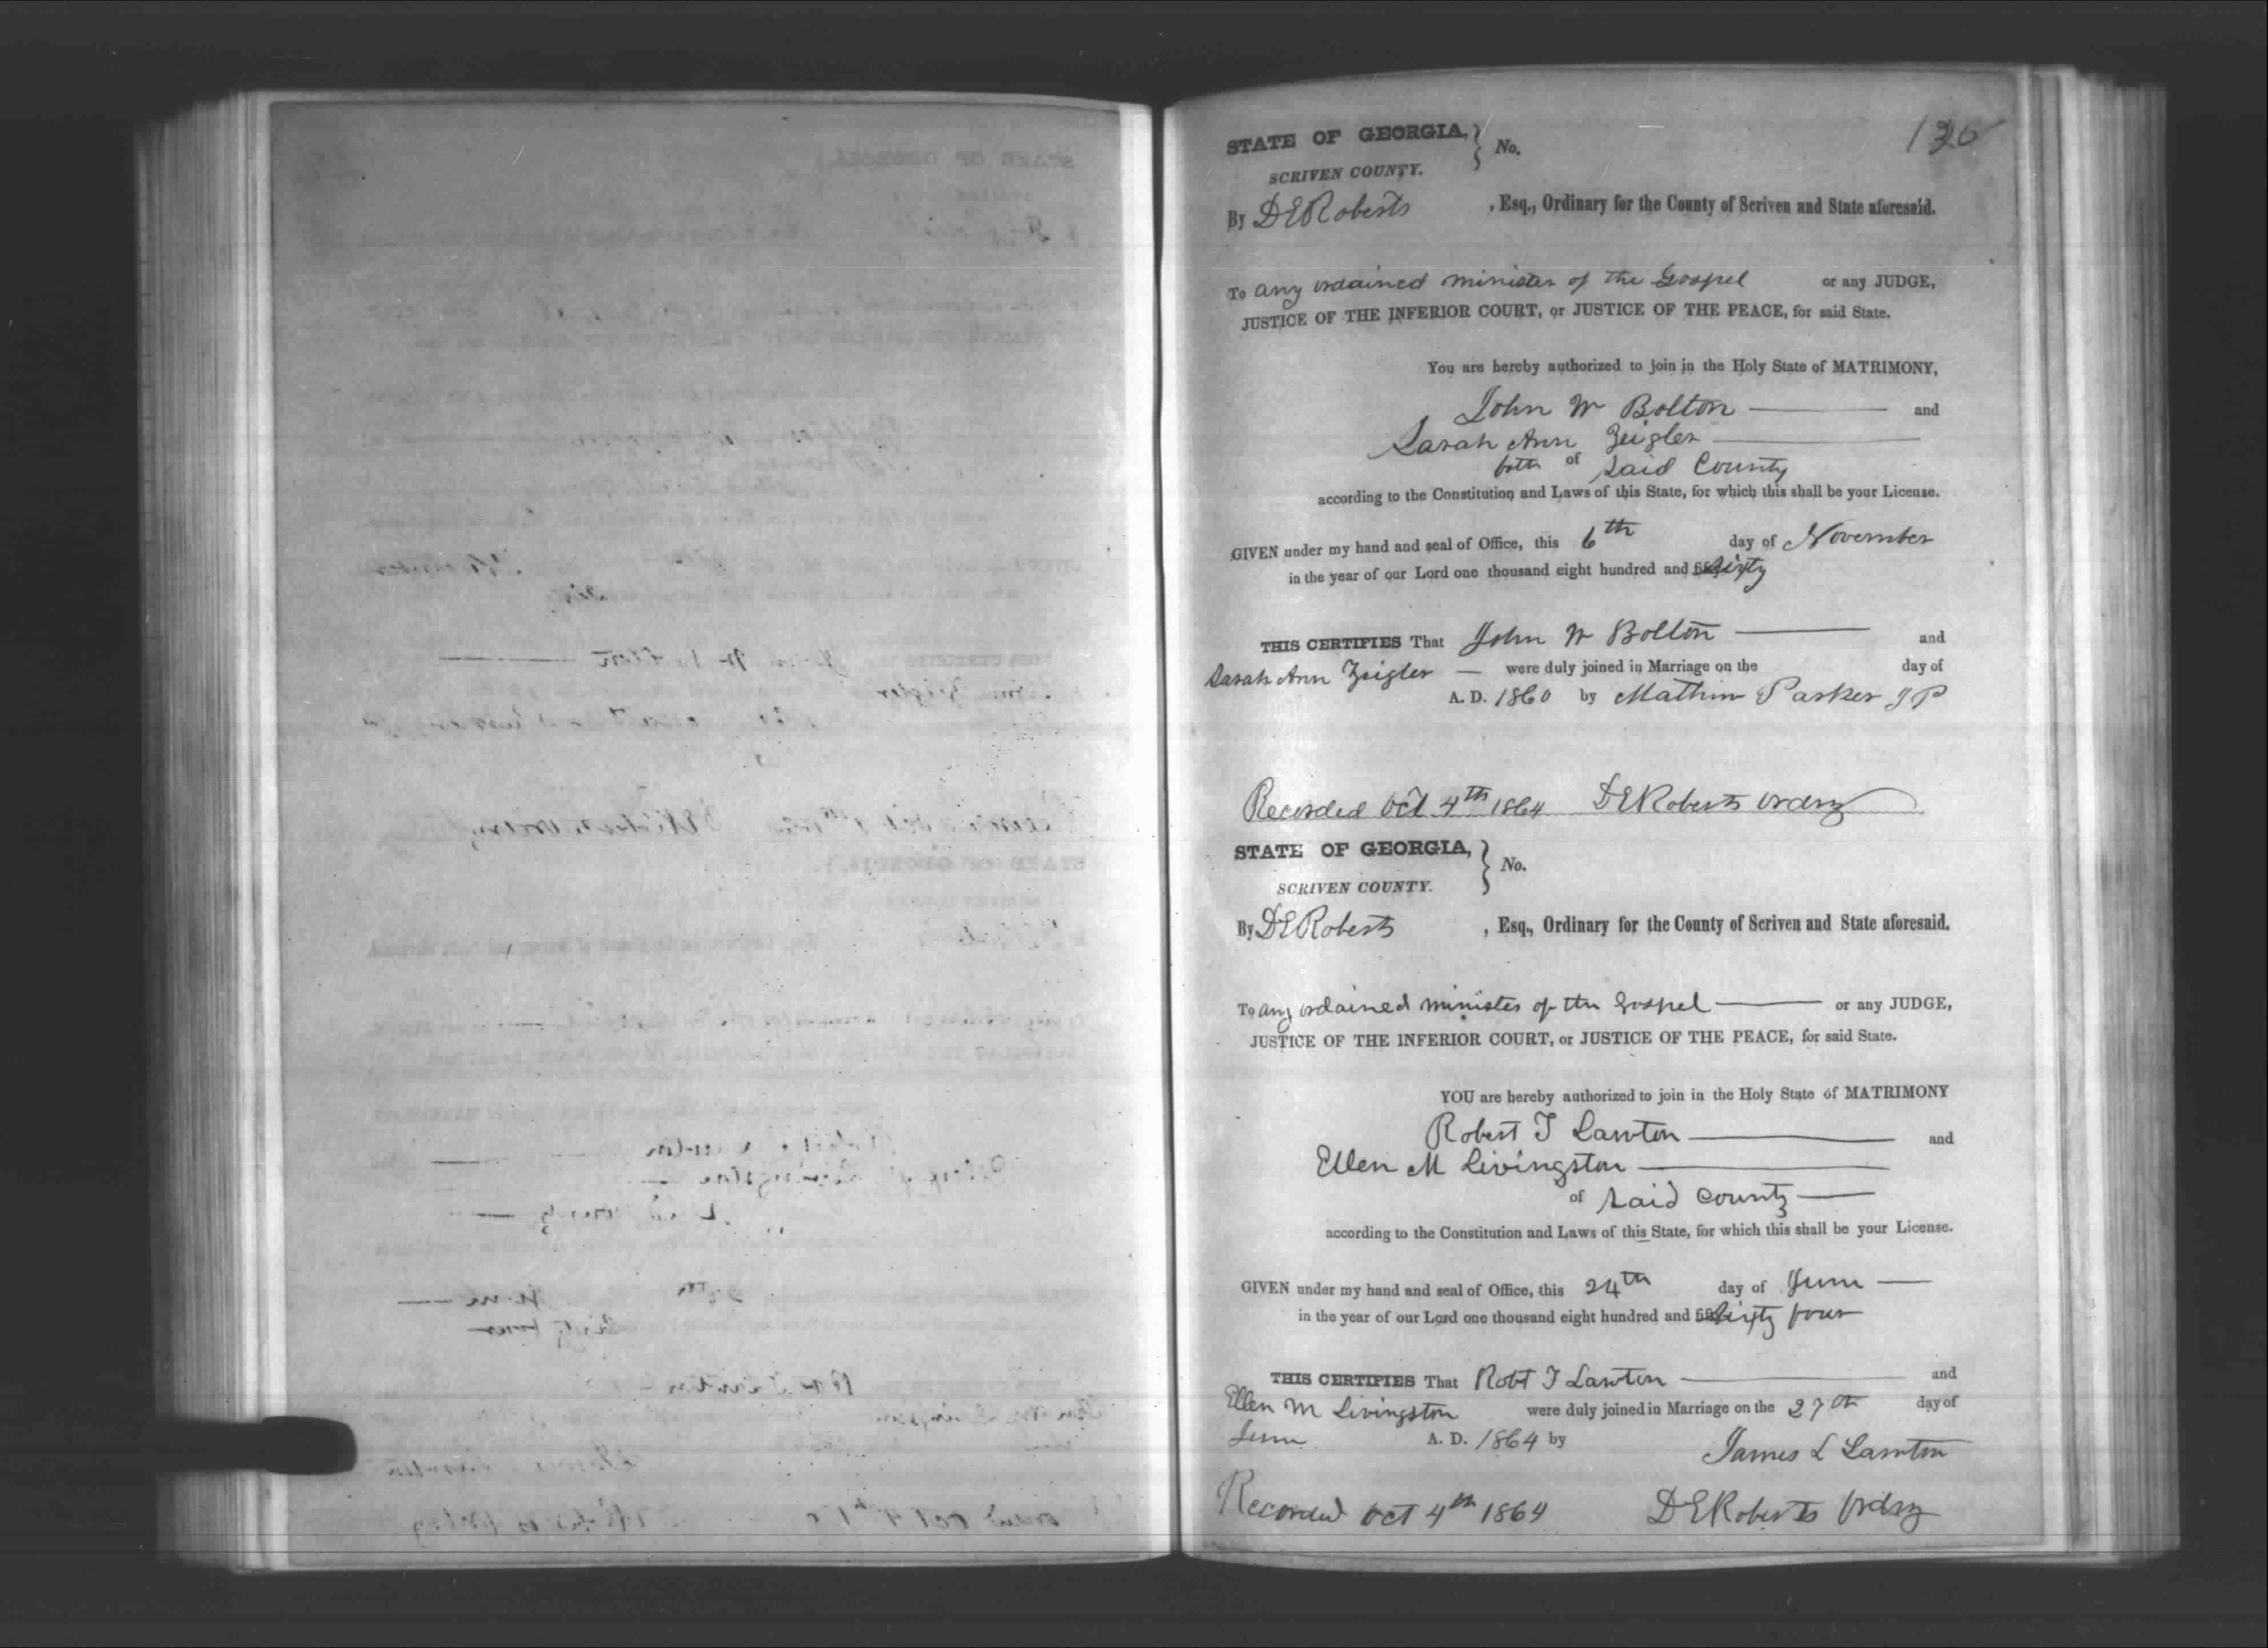 STATE OF GEORGIA, } No.
SCRIVEN COUNTY.
By D E Roberts , Esq., Ordinary for the County of Scriven and State aforesaid.
To any ordained minister of the Gospel or any JUDGE,
JUSTICE OF THE INFERIOR COURT, or JUSTICE OF THE PEACE, for said State.
You are hereby authorized to join in the Holy State of MATRIMONY,
John W Bolton and
Sarah Ann Zeigler
both of said County
according to the Constitution and Laws of this State, for which this shall be your License.
GIVEN under my hand and seal of Office, this 6th day of November
in the year of our Lord one thousand eight hundred and sixty
THIS CERTIFIES That John W Bolton and
Sarah Ann Zeigler were duly joined in Marriage on the day of
A. D. 1860 by Parker J P
Recorded Oct 4th 1864 D E Roberts Ordry
STATE OF GEORGIA, } No.
SCRIVEN COUNTY.
By D E Roberts , Esq., Ordinary for the County of Scriven and State aforesaid.
To any ordained minister of the Gospel or any JUDGE,
JUSTICE OF THE INFERIOR COURT, or JUSTICE OF THE PEACE, for said State.
YOU are hereby authorized to join in the Holy State of MATRIMONY
Robert T Lawton and
Ellen M Livingston
of said County
according to the Constitution and Laws of this State, for which this shall be your License.
GIVEN under my hand and seal of Office, this 24th day of June
in the year of our Lord one thousand eight hundred and sixty four
THIS CERTIFIES That Robt T Lawton and
Ellen M Livingston were duly joined in Marriage on the 27th day of
June A. D. 1864 by James L Lawton
Recorded Oct 4th 1864 D E Roberts Ordry